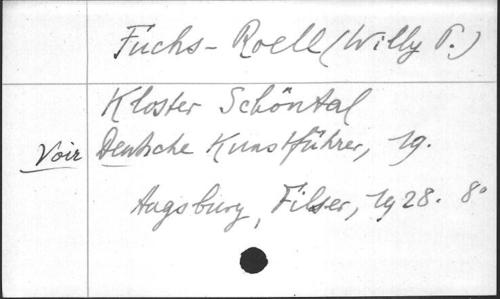 Fuchs-Roell (Willy P.)
Kloster Schöntal
Voir Deutsche Kunstführer, 19.
Augsburg, Filser, 1928. 8°